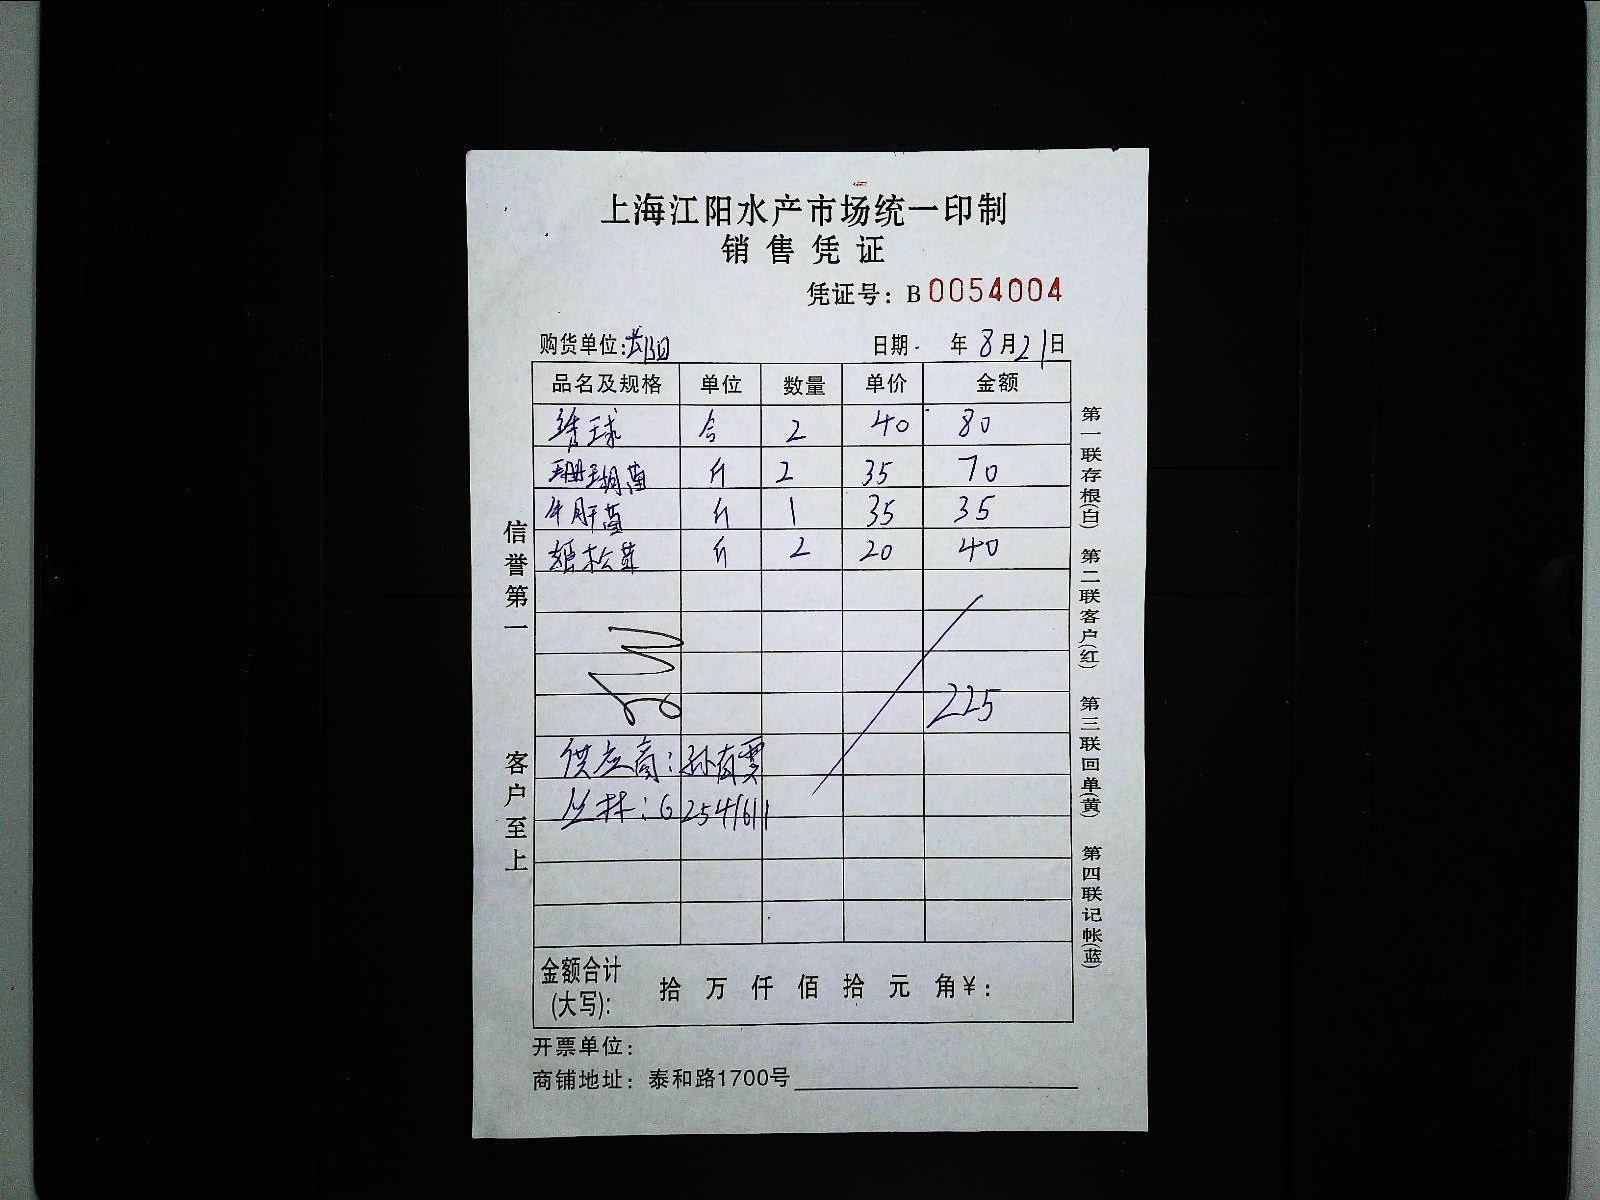 上海江阳水产市场统一印制
销售凭证
凭证号：B0054004
购货单位:
日期 年 8月21日
品名及规格 单位 数量 单价 金额
绣球 合 2 40 80
珊瑚菌 斤 2 35 70
牛肝菌 斤 1 35 35
松茸 斤 2 20 40
225
供应商：孙有
丛林：62541611
金额合计
(大写): 拾 万 仟 佰 拾 元 角￥：
开票单位：
商铺地址：泰和路1700号
信誉第一
客户至上
第一联存根(白) 第二联客户(红) 第三联回单(黄) 第四联记帐(蓝)